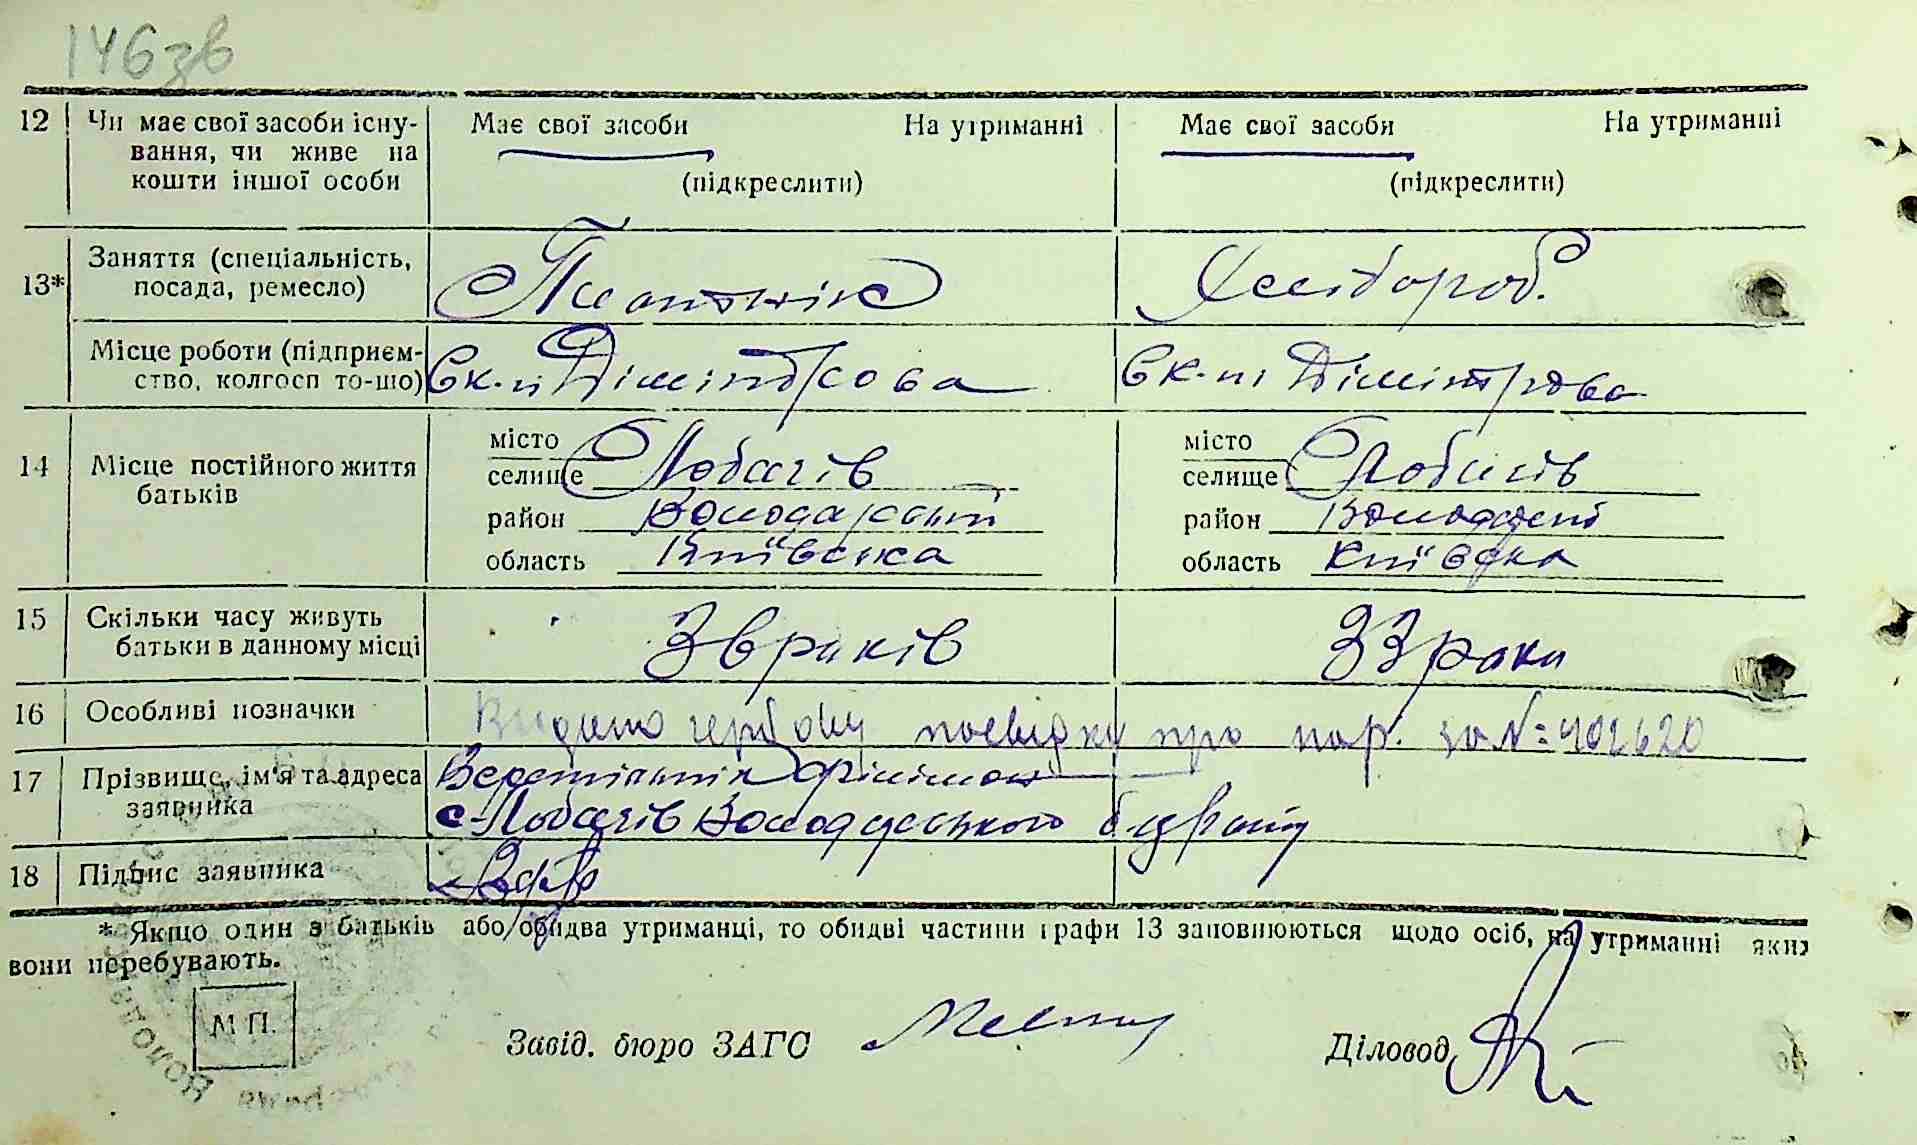 146зв
12 Чи має свої засоби існу- Має свої засоби На утриманні Має свої засоби На утриманні
вання, чи живе на
кошти іншої особи (підкреслити) (підкреслити)
13* Заняття (спеціальність,
посада, ремесло) Плотнік Хлібороб.
Місце роботи (підприєм-
ство, колгосп то-що) Ск-п Дімітрова Ск-п Дімітрова
14 Місце постійного життя
батьків
місто місто
селище Лобачів селище Лобачів
район Володарський район
область Київська область Київська
15 Скільки часу живуть
батьки в данному місці 38 років 33 роки
16 Особливі позначки Видано гербову посвідку про нар. за №=402620
17 Прізвище, ім'я та адреса Філімон
заявника с-Лобачів Володарського району
18 Підпис заявника
* Якщо один з батьків або обидва утриманці, то обидві частини графи 13 заповнюються щодо осіб, на утриманні яких
вони перебувають.
М П.
Завід. бюро ЗАГС Діловод